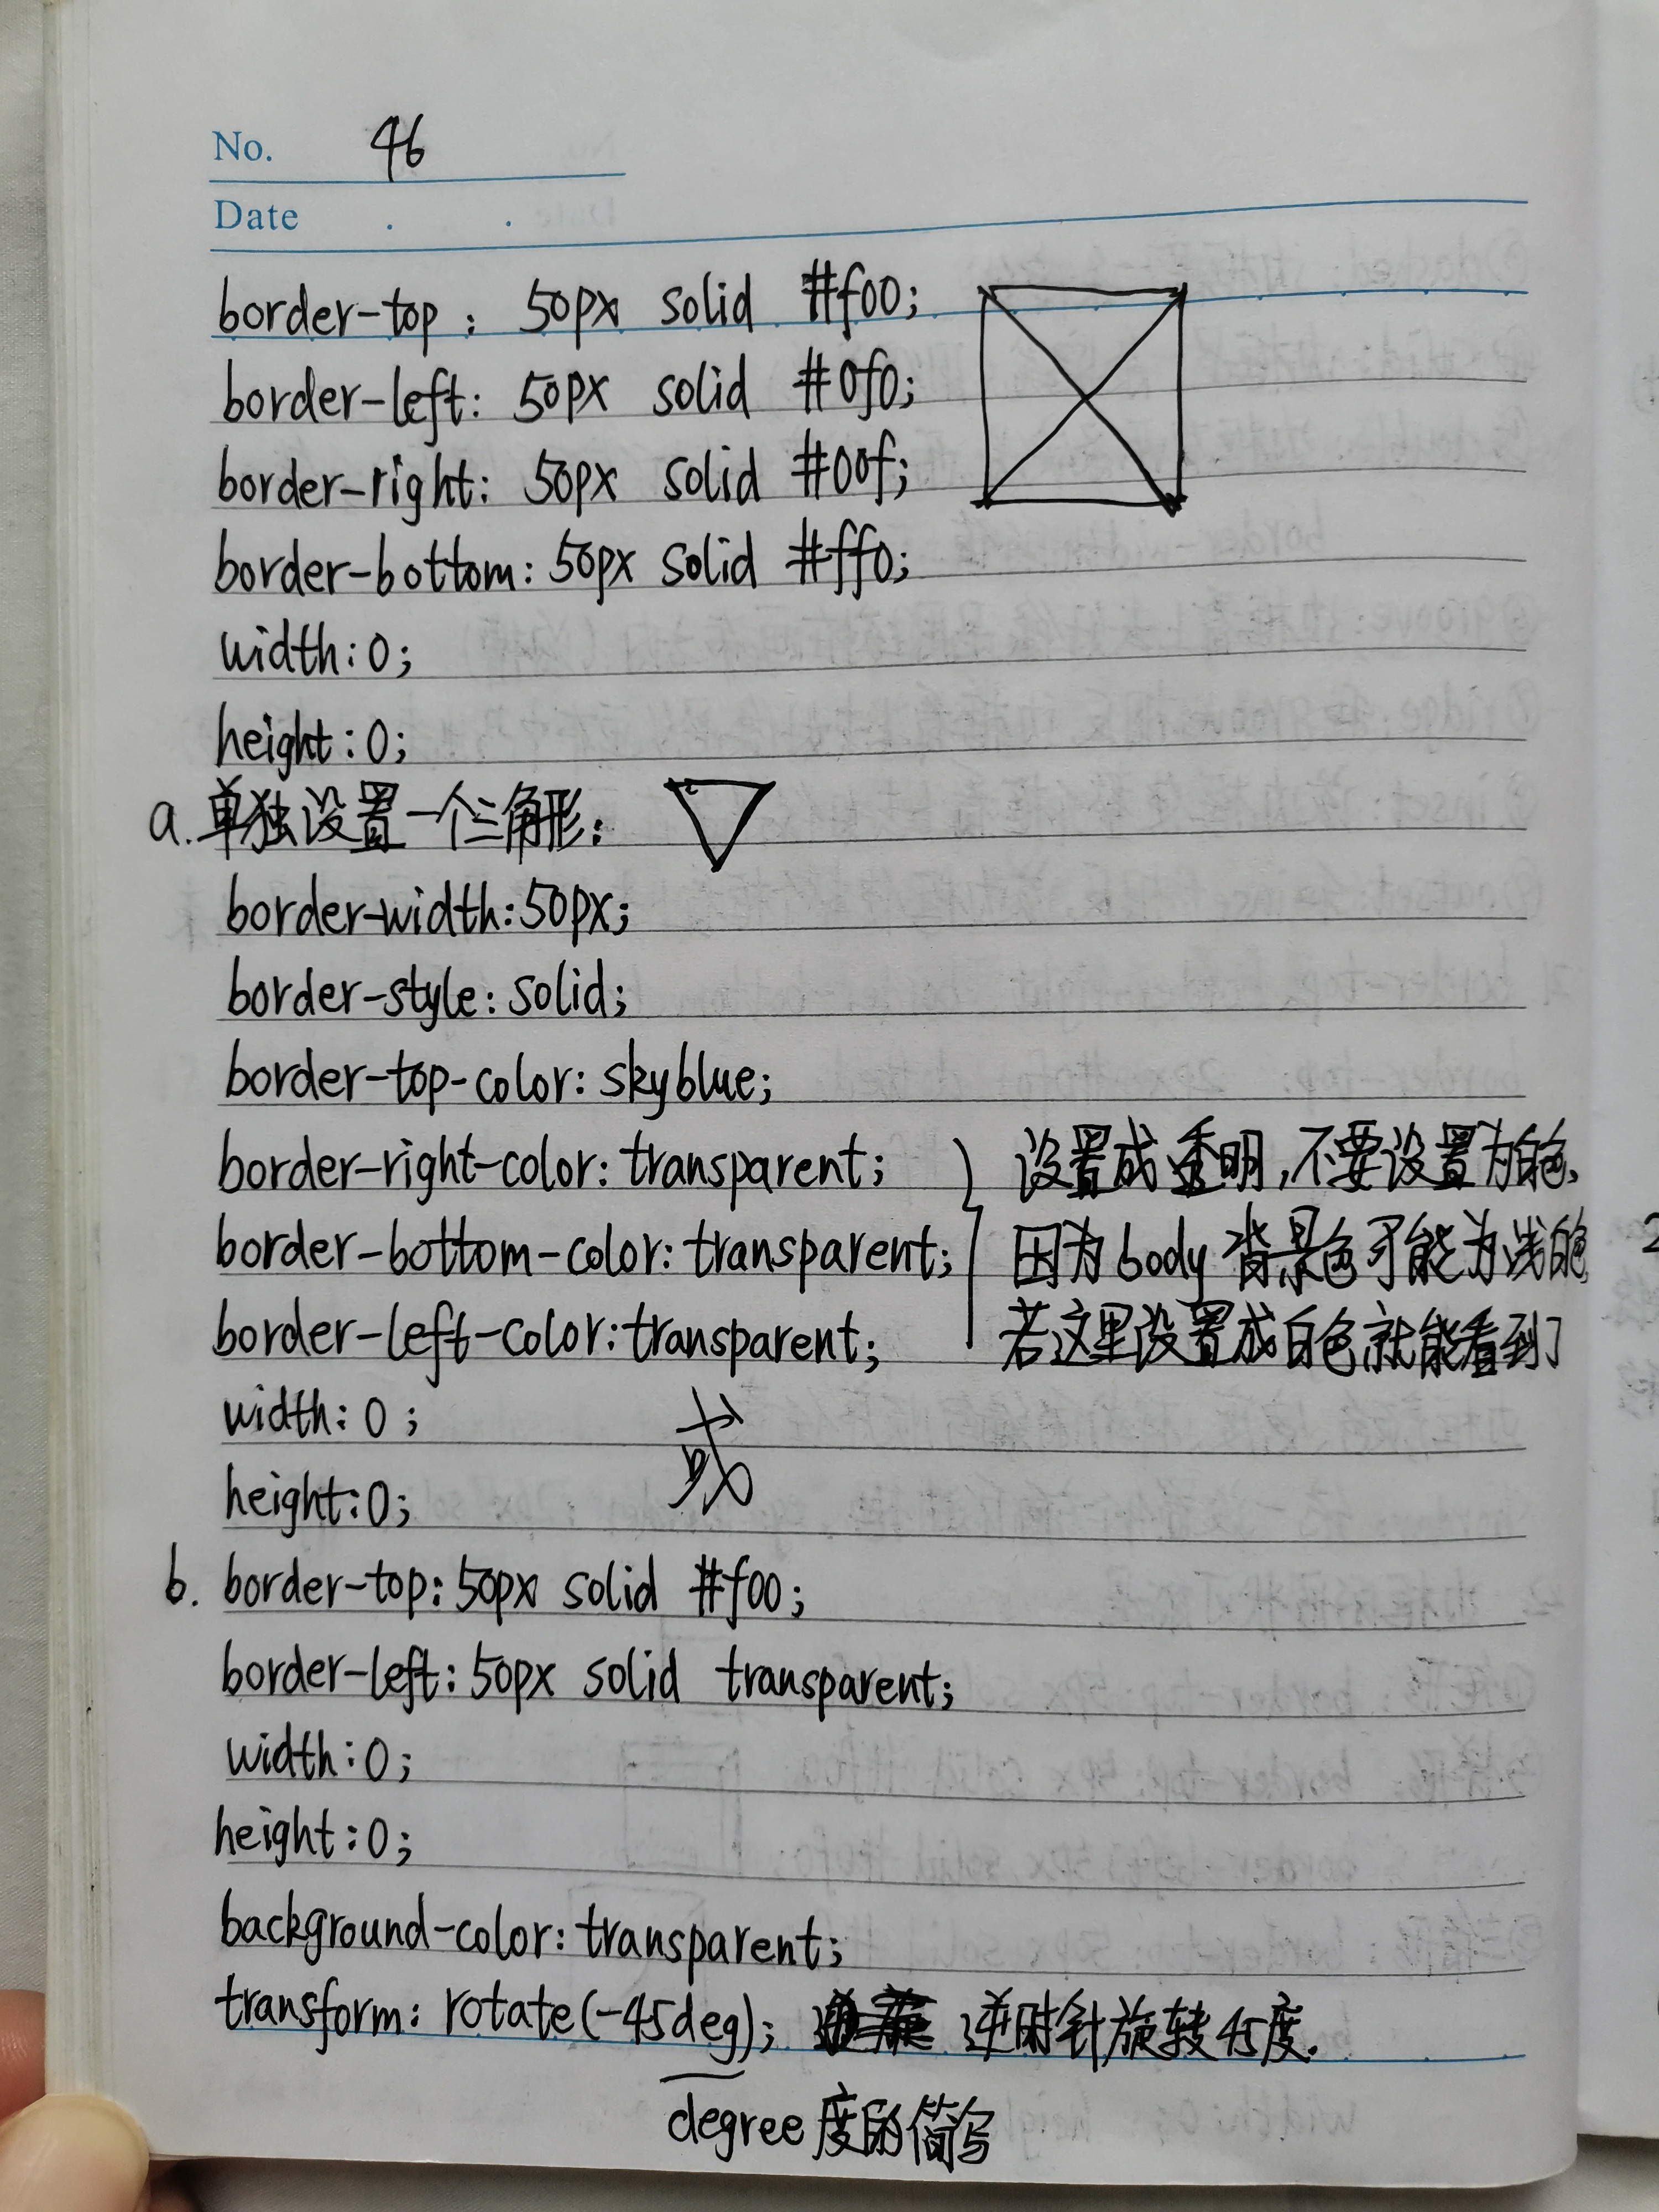 No. 46
Date . .
border-top: 50px solid #f00;
border-left: 50px solid #0f0;
border-right: 50px solid #00f;
border-bottom: 50px solid #ff0;
width:0;
height:0;
a.单独设置一个三角形:
border-width:50px;
border-style:solid;
border-top-color:skyblue;
border-right-color:transparent; 设置成透明,不要设置为白色,
border-bottom-color:transparent; 因为body背景色可能为浅白色
border-left-color:transparent; 若这里设置成白色就能看到了
width:0;
height:0;
或
b. border-top:50px solid #f00;
border-left:50px solid transparent;
width:0;
height:0;
background-color:transparent;
transform: rotate(-45deg); 逆时针旋转45度.
degree度的简写